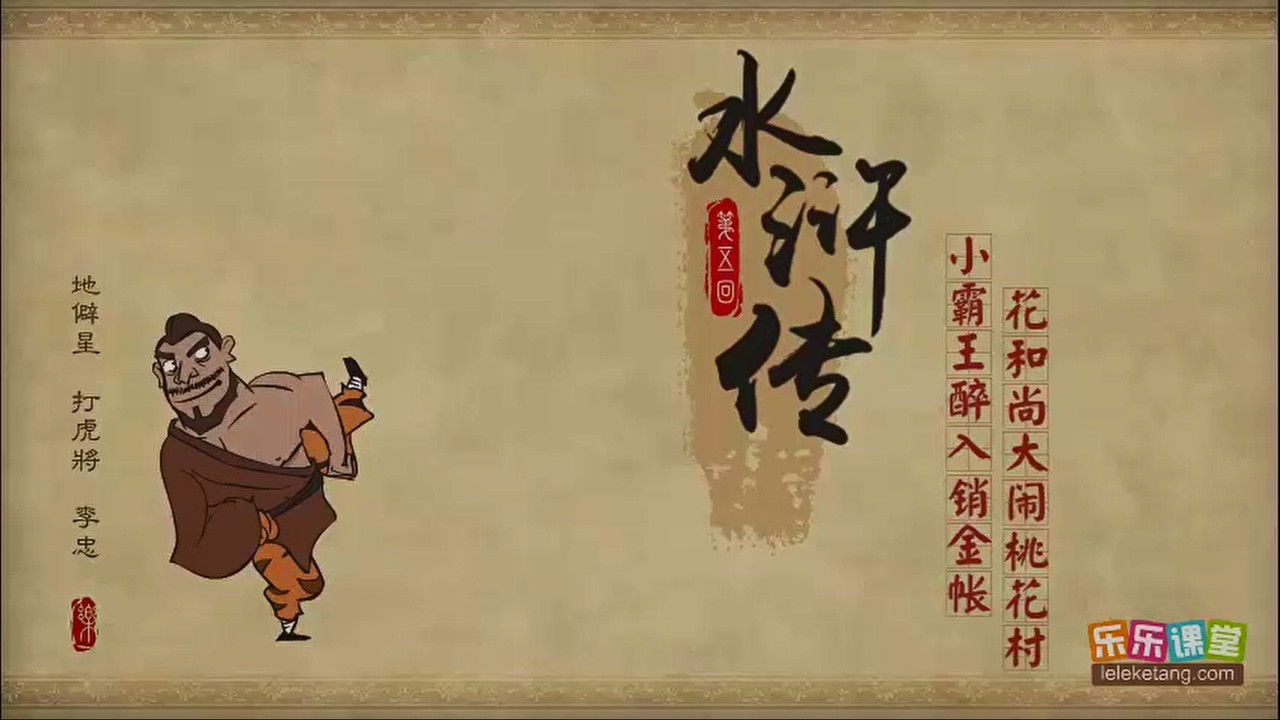 水浒传
第五回
小霸王醉入销金帐
花和尚大闹桃花村
地僻星 打虎將 李忠
樂
乐乐课堂
leleketang.com